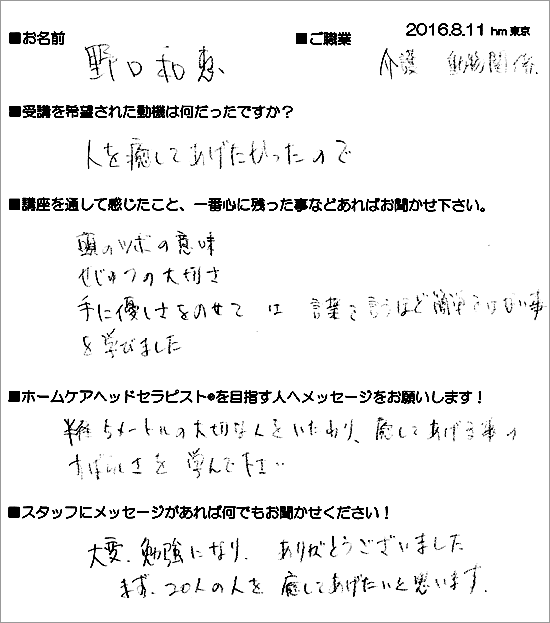 2016.8.11 hm東京
■お名前 ■ご職業
野口和恵 介護 勤務関係.
■受講を希望された動機は何だったですか?
人を癒してあげたかったので
■講座を通して感じたこと、一番心に残った事などあればお聞かせ下さい。
頭のツボの意味
せじゅつの大切さ
手に優しさをのせて は 言葉で言うほど簡単ではない事
を学びました
■ホームケアヘッドセラピスト®を目指す人へメッセージをお願いします!
半径5メートルの大切な人をいたわり、癒してあげる事の
すばらしさを 学んで下さい
■スタッフにメッセージがあれば何でもお聞かせください!
大変、勉強になり、ありがとうございました
まず、20人の人を 癒してあげたいと思います.